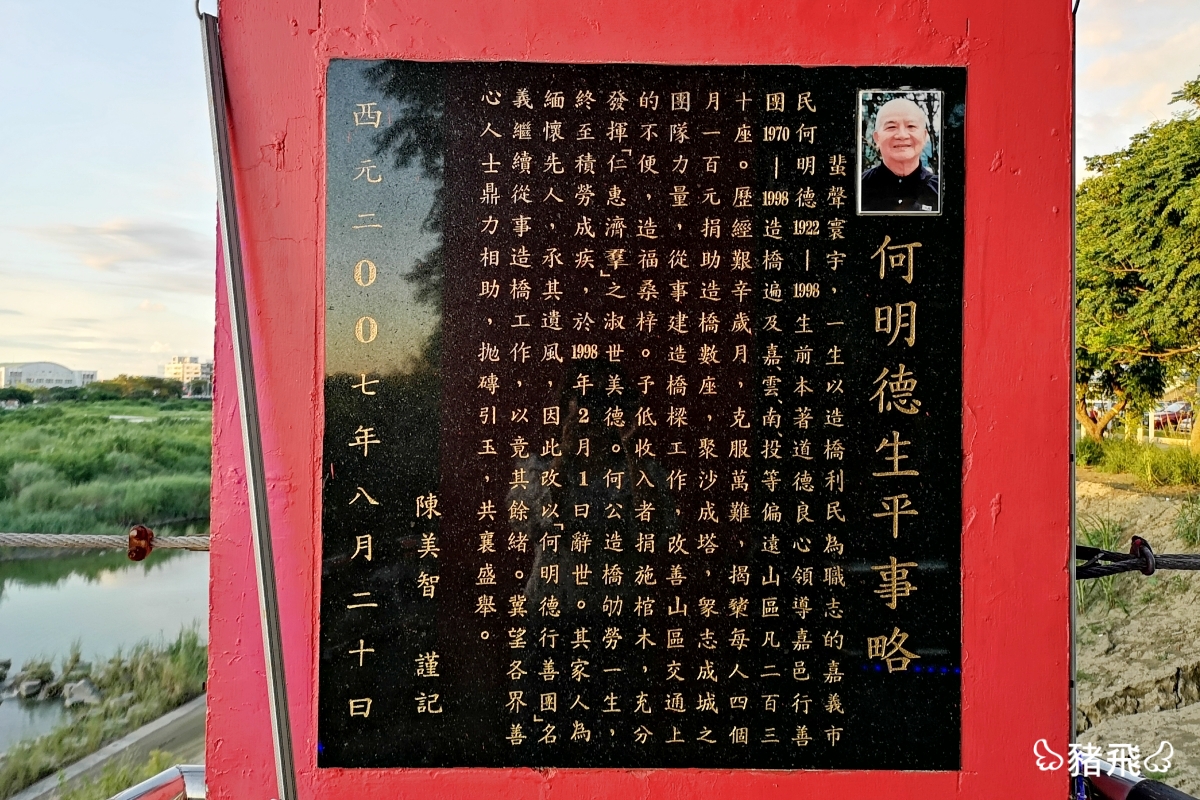 何明德生平事略
蜚聲寰宇，一生以造橋利民為職志的嘉義市
民何明德1922—1998生前本著道德良心領導嘉邑行善
團1970—1998造橋遍及嘉雲南投等偏遠山區凡二百三
十座。歷經艱辛歲月，克服萬難，揭櫫每人四個
月一百元捐助造橋數座，聚沙成塔，眾志成城之
團隊力量，從事建造橋樑工作，改善山區交通上
的不便，造福桑梓。予低收入者捐施棺木，充分
發揮「仁惠濟羣」之淑世美德。何公造橋劬勞一生，
終至積勞成疾，於1998年2月1日辭世。其家人為
緬懷先人，承其遺風，因此改以「何明德行善團」名
義繼續從事造橋工作，以竟其餘緒。冀望各界善
心人士鼎力相助，拋磚引玉，共襄盛舉。
陳美智 謹記
西元二00七年八月二十日
豬飛